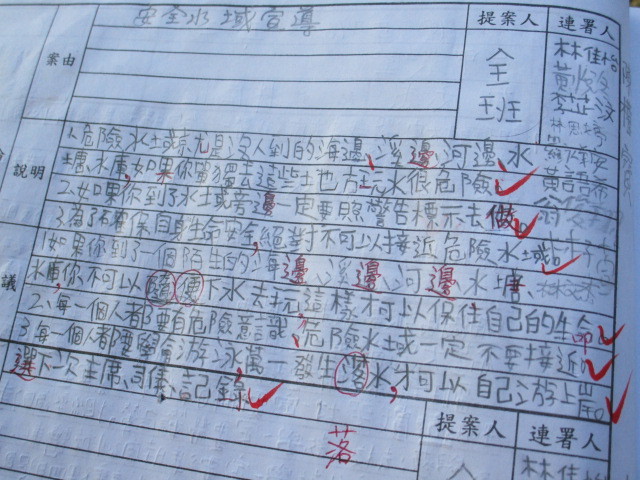 安全水域宣導
案由
提案人
連署人
全班
林佳怡
說明
1.危險水域尤是沒人到的海邊、溪邊、河邊、水
壩、水庫,如果你單獨去這些地方玩水很危險
2.如果你到了水域旁邊一定要照警告標示去做。
3.為了確保自身生命安全,絕對不可以接近危險水域。
議
1.如果你到了一個陌生的海邊、溪邊、河邊、水壩、
水庫,你不可以隨便下水去玩,這樣才可以保住自己的生命。
2、每一個人都要有危險意識、危險水域一定不要接近。
3.每一個人都要學會游泳,萬一發生溺水,才可以自己游上岸。
選下次主席、司儀、記錄
落
提案人
連署人
林佳